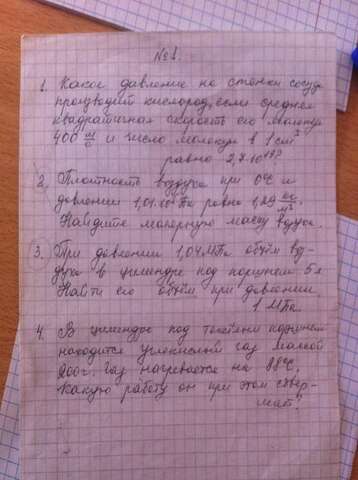 №1.
1. Какое давление на стенки сосуда
производит кислород, если средняя
квадратичная скорость его молекул
400 м/с и число молекул в 1 см³
равно 2,7·10¹⁹?
2. Плотность воздуха при 0°С и
давлении 1,01·10⁵ Па равна 1,29 кг/м³
Найдите молярную массу воздуха.
3. При давлении 1,04МПа объём воз-
духа в цилиндре под поршнем 5л
Найти его объём при давлении
1 МПа.
4. В цилиндре под поршнем
находится углекислый газ массой
200г. Газ нагревается на 88°С.
Какую работу он при этом совер-
шает?